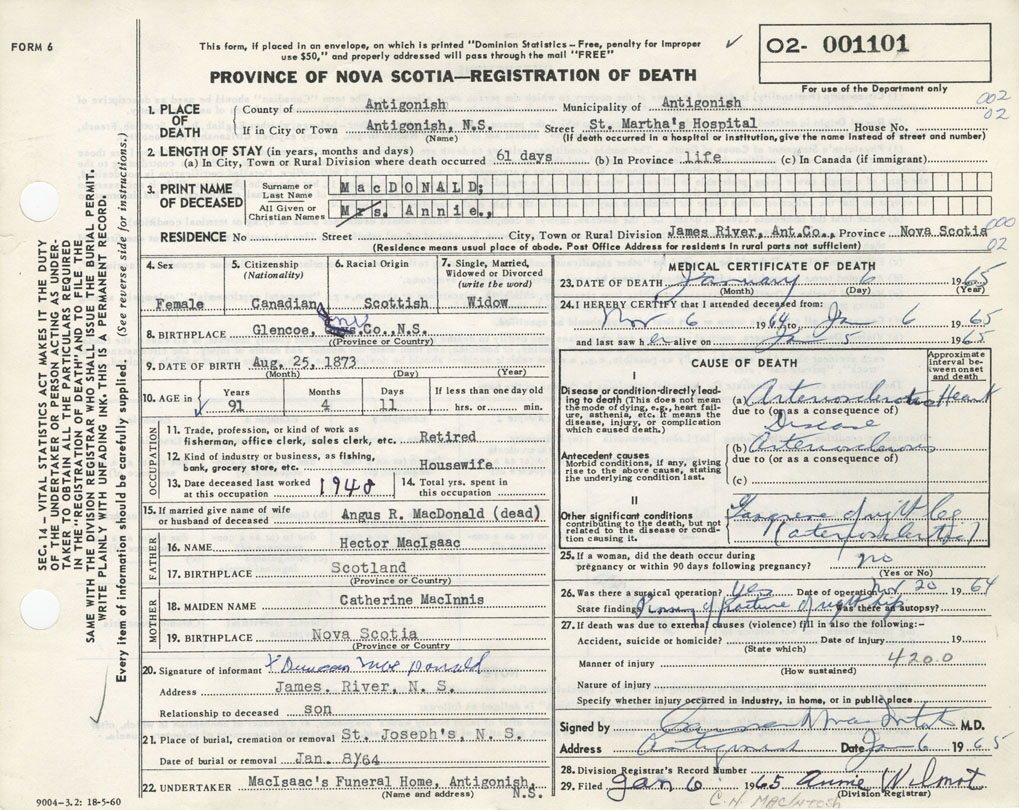 FORM 6
This form, if placed in an envelope, on which is printed "Dominion Statistics – Free, penalty for improper
use $50," and properly addressed will pass through the mail "FREE"
PROVINCE OF NOVA SCOTIA—REGISTRATION OF DEATH
02- 001101
For use of the Department only
002
02
SEC. 14—VITAL STATISTICS ACT MAKES IT THE DUTY
OF THE UNDERTAKER OR PERSON ACTING AS UNDER-
TAKER TO OBTAIN ALL THE PARTICULARS REQUIRED
IN THE "REGISTRATION OF DEATH" AND TO FILE THE
SAME WITH THE DIVISION REGISTRAR WHO SHALL ISSUE THE BURIAL PERMIT.
WRITE PLAINLY WITH UNFADING INK. THIS IS A PERMANENT RECORD.
Every item of information should be carefully supplied. (See reverse side for instructions.)
1. PLACE OF DEATH
County of Antigonish Municipality of Antigonish
If in City or Town Antigonish, N.S. Street St. Martha's Hospital House No.
(Name) (If death occurred in a hospital or institution, give the name instead of street and number)
2. LENGTH OF STAY (in years, months and days)
(a) In City, Town or Rural Division where death occurred 61 days (b) In Province life (c) In Canada (if immigrant)
3. PRINT NAME OF DECEASED
Surname or Last Name MacDONALD;
All Given or Christian Names Mrs. Annie.,
RESIDENCE No Street City, Town or Rural Division James River, Ant.Co., Province Nova Scotia
000
02
(Residence means usual place of abode. Post Office Address for residents in rural parts not sufficient)
4. Sex Female
5. Citizenship (Nationality) Canadian
6. Racial Origin Scottish
7. Single, Married, Widowed or Divorced (write the word) Widow
8. BIRTHPLACE Glencoe, Inv Co., N.S.
(Province or Country)
9. DATE OF BIRTH Aug. 25, 1873
(Month) (Day) (Year)
10. AGE in Years 91 Months 4 Days 11 If less than one day old hrs. or min.
OCCUPATION
11. Trade, profession, or kind of work as fisherman, office clerk, sales clerk, etc. Retired
12. Kind of industry or business, as fishing, bank, grocery store, etc. Housewife
13. Date deceased last worked at this occupation 1948
14. Total yrs. spent in this occupation
15. If married give name of wife or husband of deceased Angus R. MacDonald (dead)
FATHER
16. NAME Hector MacIsaac
17. BIRTHPLACE Scotland
(Province or Country)
MOTHER
18. MAIDEN NAME Catherine MacInnis
19. BIRTHPLACE Nova Scotia
(Province or Country)
20. Signature of informant X Duncan MacDonald
Address James. River, N. S.
Relationship to deceased son
21. Place of burial, cremation or removal St. Joseph's, N. S.
Date of burial or removal Jan. 8/64
22. UNDERTAKER MacIsaac's Funeral Home, Antigonish, N.S.
(Name and address)
9004-3.2: 18-5-60
MEDICAL CERTIFICATE OF DEATH
23. DATE OF DEATH January 6 1965
(Month) (Day) (Year)
24. I HEREBY CERTIFY that I attended deceased from:
Nov 6 1964 to Jan 6 1965
and last saw her alive on Jan 5 1965
CAUSE OF DEATH
Approximate interval between onset and death
I
Disease or condition directly lead-
ing to death (This does not mean
the mode of dying, e.g., heart fail-
ure, asthenia, etc. It means the
disease, injury, or complication
which caused death.)
(a) Arteriosclerotic Heart
due to (or as a consequence of)
Disease
Antecedent causes
Morbid conditions, if any, giving
rise to the above cause, stating
the underlying condition last.
(b) Arteriosclerosis
due to (or as a consequence of)
(c)
II
Other significant conditions
contributing to the death, but not
related to the disease or condi-
tion causing it.
Gangrene of right leg
25. If a woman, did the death occur during
pregnancy or within 90 days following pregnancy? no
(Yes or No)
26. Was there a surgical operation? Yes Date of operation Nov 20 1964
State findings Pinning of fracture of right hip Was there an autopsy?
27. If death was due to external causes (violence) fill in also the following:-
Accident, suicide or homicide? Date of injury 19
(State which)
Manner of injury 420.0
(How sustained)
Nature of injury
Specify whether injury occurred in industry, in home, or in public place
Signed by M.D.
Address Antigonish Date Jan 6 1965
28. Division Registrar's Record Number
29. Filed Jan 6 1965 Annie Wilmot
(Division Registrar)
C.N. MACINTOSH